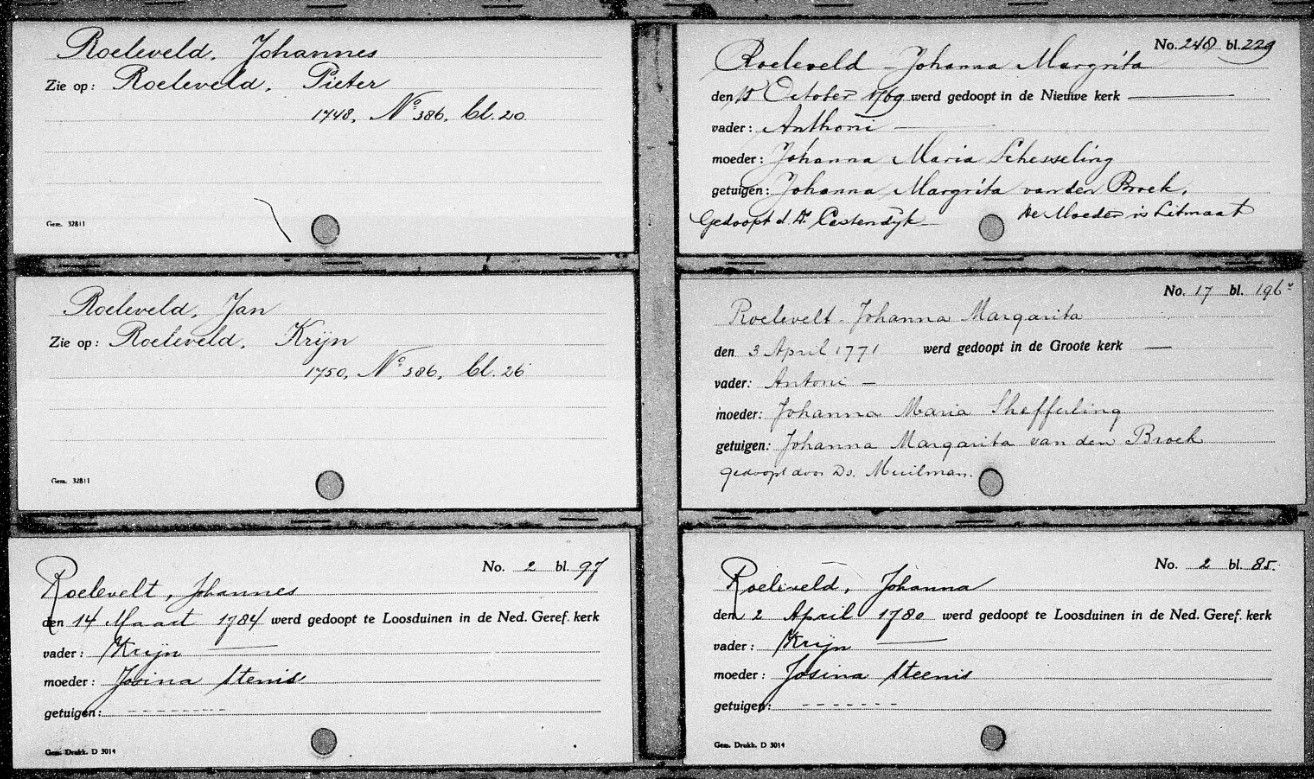 Roeleveld, Johannes
Zie op: Roeleveld, Pieter
1748, No 386, bl. 20
Gem. 32811
Roeleveld, Jan
Zie op: Roeleveld, Krijn
1750, No 386, bl. 26
Gem. 32811
No. 2 bl. 97
Roelevelt, Johannes
den 14 Maart 1784 werd gedoopt te Loosduinen in de Ned. Geref. kerk
vader: Krijn
moeder: Josina Stenis
getuigen:
Gem. Drukk. D 3014
No. 240 bl. 229
Roeleveld Johanna Margrita
den 15 October 1769 werd gedoopt in de Nieuwe kerk
vader: Anthoni
moeder: Johanna Maria Schesseling
getuigen: Johanna Margrita van den Broek,
Gedoopt d. D. Castendijk de Moeder is Litmaat
No. 17 bl. 196v
Roelevelt Johanna Margarita
den 3 April 1771 werd gedoopt in de Groote kerk
vader: Antoni
moeder: Johanna Maria Shefferling
getuigen: Johanna Margarita van den Broek
gedoopt door Ds. Muilman.
No. 2 bl. 85.
Roeleveld, Johanna
den 2 April 1780 werd gedoopt te Loosduinen in de Ned. Geref. kerk
vader: Krijn
moeder: Josina Steenis
getuigen:
Gem. Drukk. D 3014